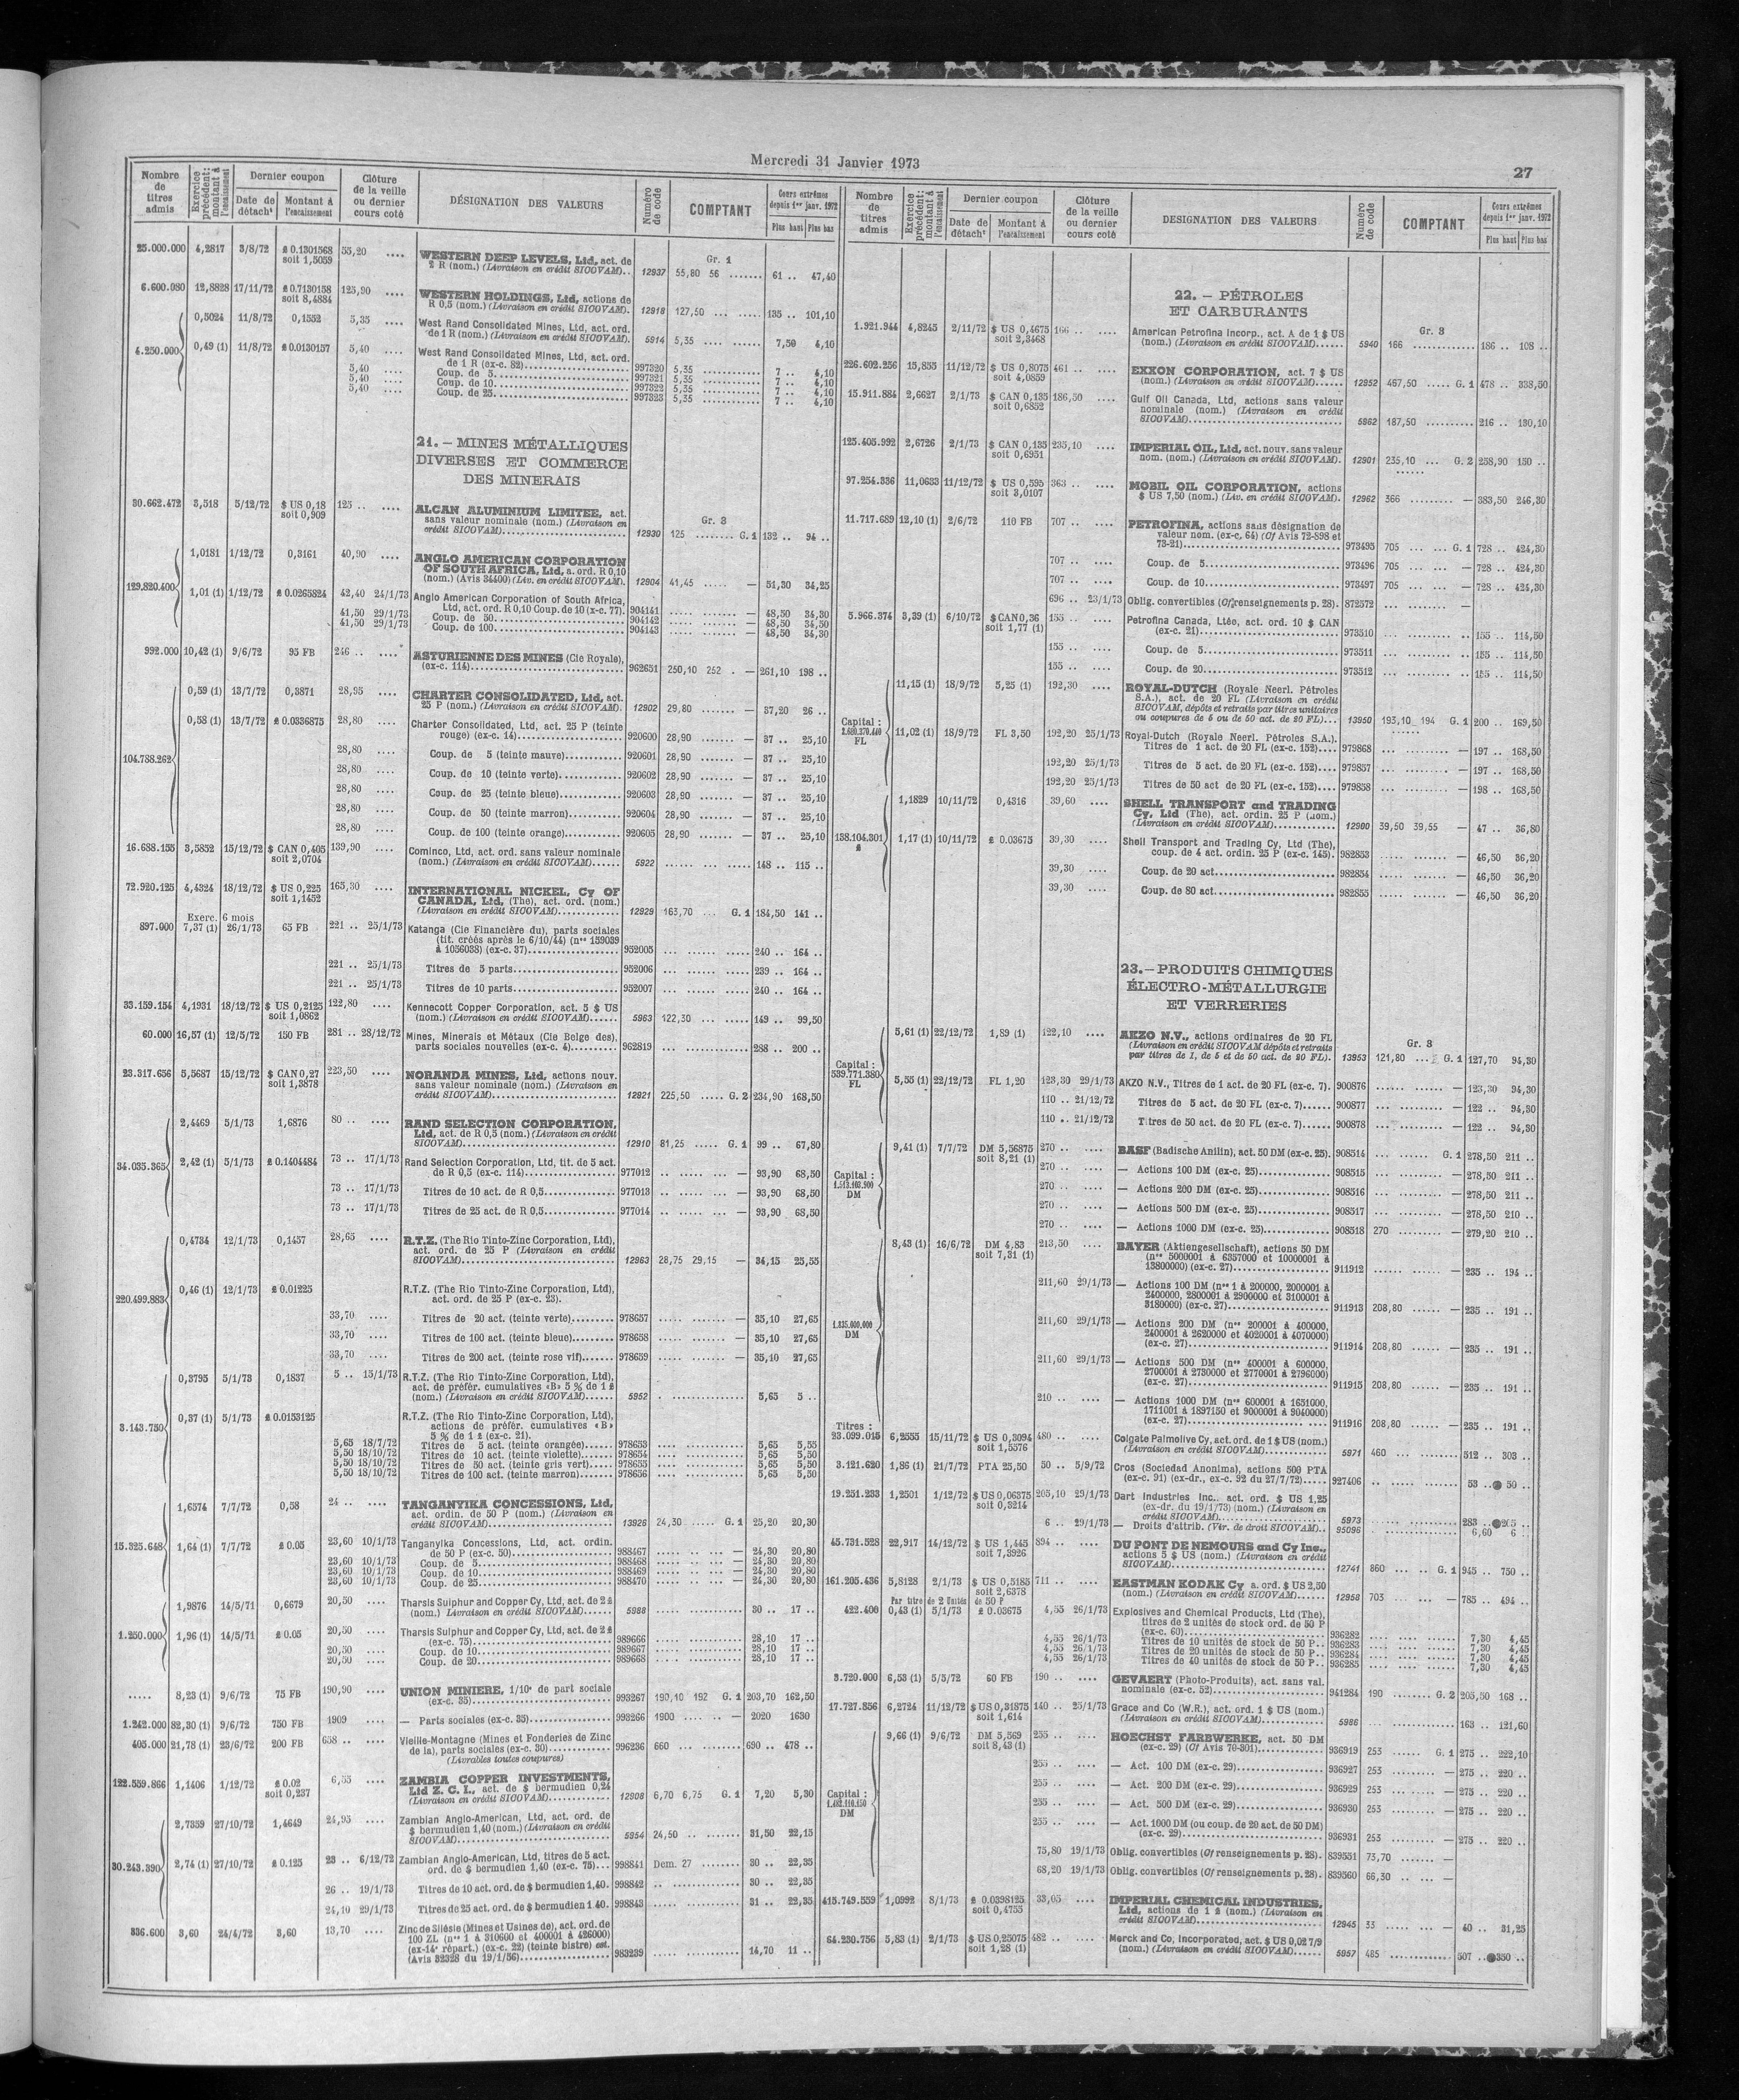 Mercredi 31 Janvier 1973
27
Nombre de titres admis
Exercice précédent: montant à l'encaissement
Dernier coupon
Date de détacht
Montant à l'encaissement
Clôture de la veille ou dernier cours coté
DÉSIGNATION DES VALEURS
Numéro de code
COMPTANT
Cours extrêmes depuis 1er janv. 1972
Plus haut Plus bas
Gr. 1
25.000.000 4,2817 3/8/72 £ 0.1301568 soit 1,5059 55,20 .... WESTERN DEEP LEVELS, Ltd, act. de
2 R (nom.) (Livraison en crédit SICOVAM).. 12937 55,80 56 ....... 61 .. 47,40
6.600.080 12,8828 17/11/72 £ 0.7130158 soit 8,4884 125,90 .... WESTERN HOLDINGS, Ltd, actions de
R 0,5 (nom.) (Livraison en crédit SICOVAM). 12918 127,50 ... ..... 135 .. 101,10
4.250.000 0,5024 11/8/72 0,1552 5,35 .... West Rand Consolidated Mines, Ltd, act. ord.
de 1 R (nom.) (Livraison en crédit SICOVAM). 5914 5,35 .... ...... 7,50 4,10
0,49 (1) 11/8/72 £ 0.0130157 5,40 .... West Rand Consolidated Mines, Ltd, act. ord.
de 1 R (ex-c. 82) 997320 5,35 ............ 7 .. 4,10
5,40 .... Coup. de 5 997321 5,35 ............ 7 .. 4,10
5,40 .... Coup. de 10 997322 5,35 ............ 7 .. 4,10
5,40 .... Coup. de 25 997323 5,35 ............ 7 .. 4,10
21. – MINES MÉTALLIQUES
DIVERSES ET COMMERCE
DES MINERAIS
Gr. 3
30.662.472 3,518 5/12/72 $ US 0,18 soit 0,909 125 .. .... ALCAN ALUMINIUM LIMITEE, act.
sans valeur nominale (nom.) (Livraison en
crédit SICOVAM) 12930 125 ........ G. 1 132 .. 94 ..
129.820.400 1,0181 1/12/72 0,3161 40,90 .... ANGLO AMERICAN CORPORATION
OF SOUTH AFRICA, Ltd, a. ord. R 0,10
(nom.) (Avis 34400) (Liv. en crédit SICOVAM). 12904 41,45 ..... — 51,30 34,25
1,01 (1) 1/12/72 £ 0.0265824 42,40 24/1/73 Anglo American Corporation of South Africa,
Ltd, act. ord. R 0,10 Coup. de 10 (x-c. 77). 904141 ..... ...... — 48,50 34,30
41,50 29/1/73 Coup. de 50 904142 ..... ...... — 48,50 34,50
41,50 29/1/73 Coup. de 100 904143 ..... ...... — 48,50 34,30
992.000 10,42 (1) 9/6/72 95 FB 246 .. .... ASTURIENNE DES MINES (Cie Royale),
(ex-c. 114) 962651 250,10 252 . — 261,10 198 ..
104.788.262 0,59 (1) 13/7/72 0,3871 28,95 .... CHARTER CONSOLIDATED, Ltd, act.
25 P (nom.) (Livraison en crédit SICOVAM). 12902 29,80 ....... — 37,20 26 ..
0,58 (1) 13/7/72 £ 0.0336875 28,80 .... Charter Consolidated, Ltd, act. 25 P (teinte
rouge) (ex-c. 14) 920600 28,90 ....... — 37 .. 25,10
28,80 .... Coup. de 5 (teinte mauve) 920601 28,90 ....... — 37 .. 25,10
28,80 .... Coup. de 10 (teinte verte) 920602 28,90 ....... — 37 .. 25,10
28,80 .... Coup. de 25 (teinte bleue) 920603 28,90 ....... — 37 .. 25,10
28,80 .... Coup. de 50 (teinte marron) 920604 28,90 ....... — 37 .. 25,10
28,80 .... Coup. de 100 (teinte orange) 920605 28,90 ....... — 37 .. 25,10
16.688.155 3,5852 15/12/72 $ CAN 0,405 soit 2,0704 139,90 .... Cominco, Ltd, act. ord. sans valeur nominale
(nom.) (Livraison en crédit SICOVAM) 5922 ...... ... ..... 148 .. 115 ..
72.920.125 4,4324 18/12/72 $ US 0,225 soit 1,1452 165,30 .... INTERNATIONAL NICKEL, Cy OF
CANADA, Ltd, (The), act. ord. (nom.)
(Livraison en crédit SICOVAM) 12929 163,70 ... G. 1 184,50 141 ..
897.000 Exerc. 6 mois 7,37 (1) 26/1/73 65 FB 221 .. 25/1/73 Katanga (Cie Financière du), parts sociales
(tit. créés après le 6/10/44) (nos 159039
à 1056038) (ex-c. 37) 952005 ... ...... ..... 240 .. 164 ..
221 .. 25/1/73 Titres de 5 parts 952006 ... ...... ..... 239 .. 164 ..
221 .. 25/1/73 Titres de 10 parts 952007 ... ...... ..... 240 .. 164 ..
33.159.154 4,1931 18/12/72 $ US 0,2125 soit 1,0862 122,80 .... Kennecott Copper Corporation, act. 5 $ US
(nom.) (Livraison en crédit SICOVAM) 5963 122,30 ... ..... 149 .. 99,50
60.000 16,57 (1) 12/5/72 150 FB 281 .. 28/12/72 Mines, Minerais et Métaux (Cie Belge des),
parts sociales nouvelles (ex-c. 4) 962819 ... ...... ..... 288 .. 200 ..
23.317.656 5,5687 15/12/72 $ CAN 0,27 soit 1,3878 223,50 .... NORANDA MINES, Ltd, actions nouv.
sans valeur nominale (nom.) (Livraison en
crédit SICOVAM) 12921 225,50 ..... G. 2 234,90 168,50
34.035.365 2,4469 5/1/73 1,6876 80 .. .... RAND SELECTION CORPORATION,
Ltd, act. de R 0,5 (nom.) (Livraison en crédit
SICOVAM) 12910 81,25 ..... G. 1 99 .. 67,80
2,42 (1) 5/1/73 £ 0.1404484 73 .. 17/1/73 Rand Selection Corporation, Ltd, tit. de 5 act.
de R 0,5 (ex-c. 114) 977012 .. ..... ... — 93,90 68,50
73 .. 17/1/73 Titres de 10 act. de R 0,5 977013 .. ..... ... — 93,90 68,50
73 .. 17/1/73 Titres de 25 act. de R 0,5 977014 .. ..... ... — 93,90 68,50
220.499.883 0,4734 12/1/73 0,1457 28,65 .... R.T.Z. (The Rio Tinto-Zinc Corporation, Ltd),
act. ord. de 25 P (Livraison en crédit
SICOVAM) 12963 28,75 29,15 — 34,15 25,55
0,46 (1) 12/1/73 £ 0.01225 R.T.Z. (The Rio Tinto-Zinc Corporation, Ltd),
act. ord. de 25 P (ex-c. 23).
33,70 .... Titres de 20 act. (teinte verte) 978657 ..... ...... — 35,10 27,65
33,70 .... Titres de 100 act. (teinte bleue) 978658 ..... ...... — 35,10 27,65
33,70 .... Titres de 200 act. (teinte rose vif) 978659 ..... ...... — 35,10 27,65
3.143.750 0,3795 5/1/73 0,1837 5 .. 15/1/73 R.T.Z. (The Rio Tinto-Zinc Corporation, Ltd),
act. de préfér. cumulatives «B» 5 % de 1 £
(nom.) (Livraison en crédit SICOVAM) 5952 . ............... 5,65 5 ..
0,37 (1) 5/1/73 £ 0.0153125 R.T.Z. (The Rio Tinto-Zinc Corporation, Ltd),
actions de préfér. cumulatives «B»
5 % de 1 £ (ex-c. 21).
5,65 18/7/72 Titres de 5 act. (teinte orangée) 978653 .... ............ 5,65 5,55
5,50 18/10/72 Titres de 10 act. (teinte violette) 978654 .... ............ 5,65 5,50
5,50 18/10/72 Titres de 50 act. (teinte gris vert) 978655 .... ............ 5,65 5,50
5,50 18/10/72 Titres de 100 act. (teinte marron) 978656 .... ............ 5,65 5,50
15.325.648 1,6574 7/7/72 0,58 24 .. .... TANGANYIKA CONCESSIONS, Ltd,
act. ordin. de 50 P (nom.) (Livraison en
crédit SICOVAM) 13926 24,30 ..... G. 1 25,20 20,30
1,64 (1) 7/7/72 £ 0.05 23,60 10/1/73 Tanganyika Concessions, Ltd, act. ordin.
de 50 P (ex-c. 50) 988467 ..... .. ... — 24,30 20,80
23,60 10/1/73 Coup. de 5 988468 ..... .. ... — 24,30 20,80
23,60 10/1/73 Coup. de 10 988469 ..... .. ... — 24,30 20,80
23,60 10/1/73 Coup. de 25 988470 ..... .. ... — 24,30 20,80
1.250.000 1,9876 14/5/71 0,6679 20,50 .... Tharsis Sulphur and Copper Cy, Ltd, act. de 2 £
(nom.) Livraison en crédit SICOVAM) 5988 .... ............ 30 .. 17 ..
1,96 (1) 14/5/71 £ 0.05 20,50 .... Tharsis Sulphur and Copper Cy, Ltd, act. de 2 £
(ex-c. 75) 989666 .... ............ 28,10 17 ..
20,50 .... Coup. de 10 989667 .... ............ 28,10 17 ..
20,50 .... Coup. de 20 989668 .... ............ 28,10 17 ..
..... 8,23 (1) 9/6/72 75 FB 190,90 .... UNION MINIERE, 1/10e de part sociale
(ex-c. 35) 993267 190,10 192 G. 1 203,70 162,50
1.242.000 82,30 (1) 9/6/72 750 FB 1909 .... — Parts sociales (ex-c. 35) 993266 1900 .... .. — 2020 1630
405.000 21,78 (1) 23/6/72 200 FB 658 .. .... Vieille-Montagne (Mines et Fonderies de Zinc
de la), parts sociales (ex-c. 30) 996236 660 ... ......... 690 .. 478 ..
(Livrables toutes coupures)
122.559.866 1,1406 1/12/72 £ 0.02 soit 0,237 6,55 .... ZAMBIA COPPER INVESTMENTS,
Ltd Z. C. I., act. de $ bermudien 0,24
(Livraison en crédit SICOVAM) 12908 6,70 6,75 G. 1 7,20 5,30
30.243.390 2,7359 27/10/72 1,4649 24,95 .... Zambian Anglo-American, Ltd, act. ord. de
$ bermudien 1,40 (nom.) (Livraison en crédit
SICOVAM) 5954 24,50 .. ........ 31,50 22,15
2,74 (1) 27/10/72 £ 0.125 23 .. 6/12/72 Zambian Anglo-American, Ltd, titres de 5 act.
ord. de $ bermudien 1,40 (ex-c. 75) 998841 Dem. 27 ........ 30 .. 22,35
26 .. 19/1/73 Titres de 10 act. ord. de $ bermudien 1,40. 998842 .. .............. 30 .. 22,35
24,10 29/1/73 Titres de 25 act. ord. de $ bermudien 1 40. 998843 ..... ........... 31 .. 22,35
336.600 3,60 24/4/72 3,60 13,70 .... Zinc de Silésie (Mines et Usines de), act. ord. de
100 ZL (nos 1 à 310600 et 400001 à 426000)
(ex-14e répart.) (ex-c. 22) (teinte bistre) est.
(Avis 32328 du 19/1/56) 983239 ..... ........... 14,70 11 ..
Nombre de titres admis
Exercice précédent: montant à l'encaissement
Dernier coupon
Date de détacht
Montant à l'encaissement
Clôture de la veille ou dernier cours coté
DESIGNATION DES VALEURS
Numéro de code
COMPTANT
Cours extrêmes depuis 1er janv. 1972
Plus haut Plus bas
22. – PÉTROLES
ET CARBURANTS
Gr. 3
1.921.944 4,8245 2/11/72 $ US 0,4675 soit 2,3468 166 .. .... American Petrofina Incorp., act. A de 1 $ US
(nom.) (Livraison en crédit SICOVAM) 5940 166 ............. 186 .. 108 ..
226.602.256 15,855 11/12/72 $ US 0,8075 soit 4,0859 461 .. .... EXXON CORPORATION, act. 7 $ US
(nom.) (Livraison en crédit SICOVAM) 12952 467,50 ..... G. 1 478 .. 338,50
15.911.884 2,6627 2/1/73 $ CAN 0,135 soit 0,6852 186,50 .... Gulf Oil Canada, Ltd, actions sans valeur
nominale (nom.) (Livraison en crédit
SICOVAM) 5962 187,50 .......... 216 .. 130,10
125.405.992 2,6726 2/1/73 $ CAN 0,135 soit 0,6951 235,10 .... IMPERIAL OIL, Ltd, act. nouv. sans valeur
nom. (nom.) (Livraison en crédit SICOVAM). 12901 235,10 ... G. 2 258,90 150 ..
97.254.336 11,0633 11/12/72 $ US 0,595 soit 3,0107 363 .. .... MOBIL OIL CORPORATION, actions
$ US 7,50 (nom.) (Liv. en crédit SICOVAM). 12962 366 ......... — 383,50 246,30
11.717.689 12,10 (1) 2/6/72 110 FB 707 .. .... PETROFINA, actions sans désignation de
valeur nom. (ex-c. 64) (Cf Avis 72-898 et
73-21) 973495 705 ... ... G. 1 728 .. 424,30
707 .. .... Coup. de 5 973496 705 ... ... — 728 .. 424,30
707 .. .... Coup. de 10 973497 705 ... ... — 728 .. 424,30
696 .. 23/1/73 Oblig. convertibles (Cf renseignements p. 28). 872572 ... ........ —
5.966.374 3,39 (1) 6/10/72 $ CAN 0,36 soit 1,77 (1) 155 .. .... Petrofina Canada, Ltée, act. ord. 10 $ CAN
(ex-c. 21) 973510 ... ......... .. 155 .. 114,50
155 .. .... Coup. de 5 973511 ... ......... .. 155 .. 114,50
155 .. .... Coup. de 20 973512 ... ......... .. 155 .. 114,50
Capital : 2.680.370.440 FL 11,15 (1) 18/9/72 5,25 (1) 192,30 .... ROYAL-DUTCH (Royale Neerl. Pétroles
S.A.), act. de 20 FL (Livraison en crédit
SICOVAM, dépôts et retraits par titres unitaires
ou coupures de 5 ou de 50 act. de 20 FL) 13950 193,10 194 G. 1 200 .. 169,50
11,02 (1) 18/9/72 FL 3,50 192,20 25/1/73 Royal-Dutch (Royale Neerl. Pétroles S.A.).
Titres de 1 act. de 20 FL (ex-c. 152) 979868 ... ......... — 197 .. 168,50
192,20 25/1/73 Titres de 5 act. de 20 FL (ex-c. 152) 979857 ... ......... — 197 .. 168,50
192,20 25/1/73 Titres de 50 act de 20 FL (ex-c. 152) 979858 ... ......... — 198 .. 168,50
138.104.301 £ 1,1829 10/11/72 0,4316 39,60 .... SHELL TRANSPORT and TRADING
Cy, Ltd (The), act. ordin. 25 P (nom.)
(Livraison en crédit SICOVAM) 12980 39,50 39,55 — 47 .. 36,80
1,17 (1) 10/11/72 £ 0.03675 39,30 .... Shell Transport and Trading Cy, Ltd (The),
coup. de 4 act. ordin. 25 P (ex-c. 145). 982853 ..... ...... — 46,50 36,20
39,30 .... Coup. de 20 act 982854 ..... ...... — 46,50 36,20
39,30 .... Coup. de 80 act 982855 ..... ...... — 46,50 36,20
23. – PRODUITS CHIMIQUES
ÉLECTRO-MÉTALLURGIE
ET VERRERIES
Gr. 3
Capital : 539.771.380 FL 5,61 (1) 22/12/72 1,89 (1) 122,10 .... AKZO N.V., actions ordinaires de 20 FL
(Livraison en crédit SICOVAM dépôts et retraits
par titres de 1, de 5 et de 50 act. de 20 FL). 13953 121,80 ... G. 1 127,70 94,30
5,55 (1) 22/12/72 FL 1,20 123,30 29/1/73 AKZO N.V., Titres de 1 act. de 20 FL (ex-c. 7). 900876 ...... ...... — 123,30 94,30
110 .. 21/12/72 Titres de 5 act. de 20 FL (ex-c. 7) 900877 ... ......... — 122 .. 94,30
110 .. 21/12/72 Titres de 50 act. de 20 FL (ex-c. 7) 900878 ... ......... — 122 .. 94,30
Capital : 1.513.103.900 DM 9,41 (1) 7/7/72 DM 5,56875 soit 8,21 (1) 270 .. .... BASF (Badische Anilin), act. 50 DM (ex-c. 25). 908514 ... ...... G. 1 278,50 211 ..
270 .. .... — Actions 100 DM (ex-c. 25) 908515 ... ......... — 278,50 211 ..
270 .. .... — Actions 200 DM (ex-c. 25) 908516 ... ......... — 278,50 211 ..
270 .. .... — Actions 500 DM (ex-c. 25) 908517 ... ......... — 278,50 210 ..
270 .. .... — Actions 1000 DM (ex-c. 25) 908518 270 ......... — 279,20 210 ..
1.835.000.000 DM 8,43 (1) 16/6/72 DM 4,83 soit 7,31 (1) 213,50 .... BAYER (Aktiengesellschaft), actions 50 DM
(nos 5000001 à 6357000 et 10000001 à
13800000) (ex-c. 27) 911912 ...... ...... — 235 .. 194 ..
211,60 29/1/73 — Actions 100 DM (nos 1 à 200000, 2000001 à
2400000, 2800001 à 2900000 et 3100001 à
3180000) (ex-c. 27) 911913 208,80 ...... — 235 .. 191 ..
211,60 29/1/73 — Actions 200 DM (nos 200001 à 400000,
2400001 à 2620000 et 4020001 à 4070000)
(ex-c. 27) 911914 208,80 ...... — 235 .. 191 ..
211,60 29/1/73 — Actions 500 DM (nos 400001 à 600000,
2700001 à 2730000 et 2770001 à 2796000)
(ex-c. 27) 911915 208,80 ...... — 235 .. 191 ..
210 .. .... — Actions 1000 DM (nos 600001 à 1651000,
1711001 à 1897150 et 9000001 à 9040000)
(ex-c. 27) 911916 208,80 ...... — 235 .. 191 ..
Titres : 23.099.015 6,2555 15/11/72 $ US 0,3094 soit 1,5576 480 .. .... Colgate Palmolive Cy, act. ord. de 1 $ US (nom.)
(Livraison en crédit SICOVAM) 5971 460 ... ......... 512 .. 303 ..
3.121.620 1,86 (1) 21/7/72 PTA 25,50 50 .. 5/9/72 Cros (Sociedad Anonima), actions 500 PTA
(ex-c. 91) (ex-dr., ex-c. 92 du 27/7/72) 927406 .. ............ 53 .. 50 ..
19.251.233 1,2501 1/12/72 $ US 0,06375 soit 0,3214 205,10 29/1/73 Dart Industries Inc., act. ord. $ US 1,25
(ex-dr. du 19/1/73) (nom.) (Livraison en
crédit SICOVAM) 5973 ............... 283 .. 205 ..
6 .. 29/1/73 — Droits d'attrib. (Vir. de droit SICOVAM).. 95096 ............... 6,60 6 ..
45.731.528 22,917 14/12/72 $ US 1,445 soit 7,3926 894 .. .... DU PONT DE NEMOURS and Cy Inc.,
actions 5 $ US (nom.) (Livraison en crédit
SICOVAM) 12741 860 ... .. G. 1 945 .. 750 ..
161.205.436 5,8128 2/1/73 $ US 0,5185 soit 2,6378 711 .. .... EASTMAN KODAK Cy a. ord. $ US 2,50
(nom.) (Livraison en crédit SICOVAM) 12958 703 ... ...... — 785 .. 494 ..
Par titre de 2 Unités de 50 P
422.400 0,43 (1) 5/1/73 £ 0.03675 4,55 26/1/73 Explosives and Chemical Products, Ltd (The),
titres de 2 unités de stock ord. de 50 P
(ex-c. 60) 936282 .... .... ...... 7,30 4,45
4,55 26/1/73 Titres de 10 unités de stock de 50 P.. 936283 .... .... ...... 7,30 4,45
4,55 26/1/73 Titres de 20 unités de stock de 50 P.. 936284 .... .... ...... 7,30 4,45
4,55 26/1/73 Titres de 40 unités de stock de 50 P.. 936285 .... .... ...... 7,30 4,45
3.720.000 6,53 (1) 5/5/72 60 FB 190 .. .... GEVAERT (Photo-Produits), act. sans val.
nominale (ex-c. 52) 941284 190 ........ G. 2 205,50 168 ..
17.727.856 6,2724 11/12/72 $ US 0,31875 soit 1,614 140 .. 25/1/73 Grace and Co (W.R.), act. ord. 1 $ US (nom.)
(Livraison en crédit SICOVAM) 5986 ... ............ 163 .. 121,60
Capital : 1.482.110.450 DM 9,66 (1) 9/6/72 DM 5,569 soit 8,43 (1) 255 .. .... HOECHST FARBWERKE, act. 50 DM
(ex-c. 29) (Cf Avis 70-301) 936919 253 ...... G. 1 275 .. 222,10
255 .. .... — Act. 100 DM (ex-c. 29) 936927 253 ......... — 275 .. 220 ..
255 .. .... — Act. 200 DM (ex-c. 29) 936929 253 ......... — 275 .. 220 ..
255 .. .... — Act. 500 DM (ex-c. 29) 936930 253 ......... — 275 .. 220 ..
255 .. .... — Act. 1000 DM (ou coup. de 20 act. de 50 DM)
(ex-c. 29) 936931 253 ......... — 275 .. 220 ..
75,80 19/1/73 Oblig. convertibles (Cf renseignements p. 28). 839551 73,70 ....... —
68,20 19/1/73 Oblig. convertibles (Cf renseignements p. 28). 839560 66,30 .. ... —
415.749.559 1,0992 8/1/73 £ 0.0398125 soit 0,4755 33,05 .... IMPERIAL CHEMICAL INDUSTRIES,
Ltd, actions de 1 £ (nom.) (Livraison en
crédit SICOVAM) 12945 33 ..... ... — 40 .. 31,25
64.230.756 5,83 (1) 2/1/73 $ US 0,25075 soit 1,28 (1) 482 .. .... Merck and Co, Incorporated, act. $ US 0,02 7/9
(nom.) (Livraison en crédit SICOVAM) 5957 485 ............ 507 .. 350 ..